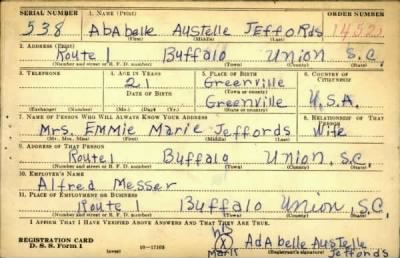 SERIAL NUMBER 1. NAME (Print) ORDER NUMBER
538 AbAbelle AusTelle JeffoRds 14522
(First) (Middle) (Last)
2. ADDRESS (Print)
Route 1 Buffalo Union S.C.
(Number and street or R. F. D. number) (Town) (County) (State)
3. TELEPHONE 4. AGE IN YEARS 5. PLACE OF BIRTH 6. COUNTRY OF CITIZENSHIP
21 Greenville
DATE OF BIRTH (Town or county)
Greenville U.S.A.
(Exchange) (Number) (Mo.) (Day) (Yr.) (State or country)
7. NAME OF PERSON WHO WILL ALWAYS KNOW YOUR ADDRESS 8. RELATIONSHIP OF THAT PERSON
Mrs. EmmIe MaRie Jeffords Wife
(Mr., Mrs., Miss) (First) (Middle) (Last)
9. ADDRESS OF THAT PERSON
Route 1 Buffalo Union, S.C.
(Number and street or R. F. D. number) (Town) (County) (State)
10. EMPLOYER'S NAME
Alfred Messer
11. PLACE OF EMPLOYMENT OR BUSINESS
Route 1 Buffalo Union, S.C.
(Number and street or R. F. D. number) (Town) (County) (State)
I AFFIRM THAT I HAVE VERIFIED ABOVE ANSWERS AND THAT THEY ARE TRUE.
his
REGISTRATION CARD (X) AdAbelle AusTelle
D. S. S. Form 1 16—17105 Mark (Registrant's signature) Jeffords